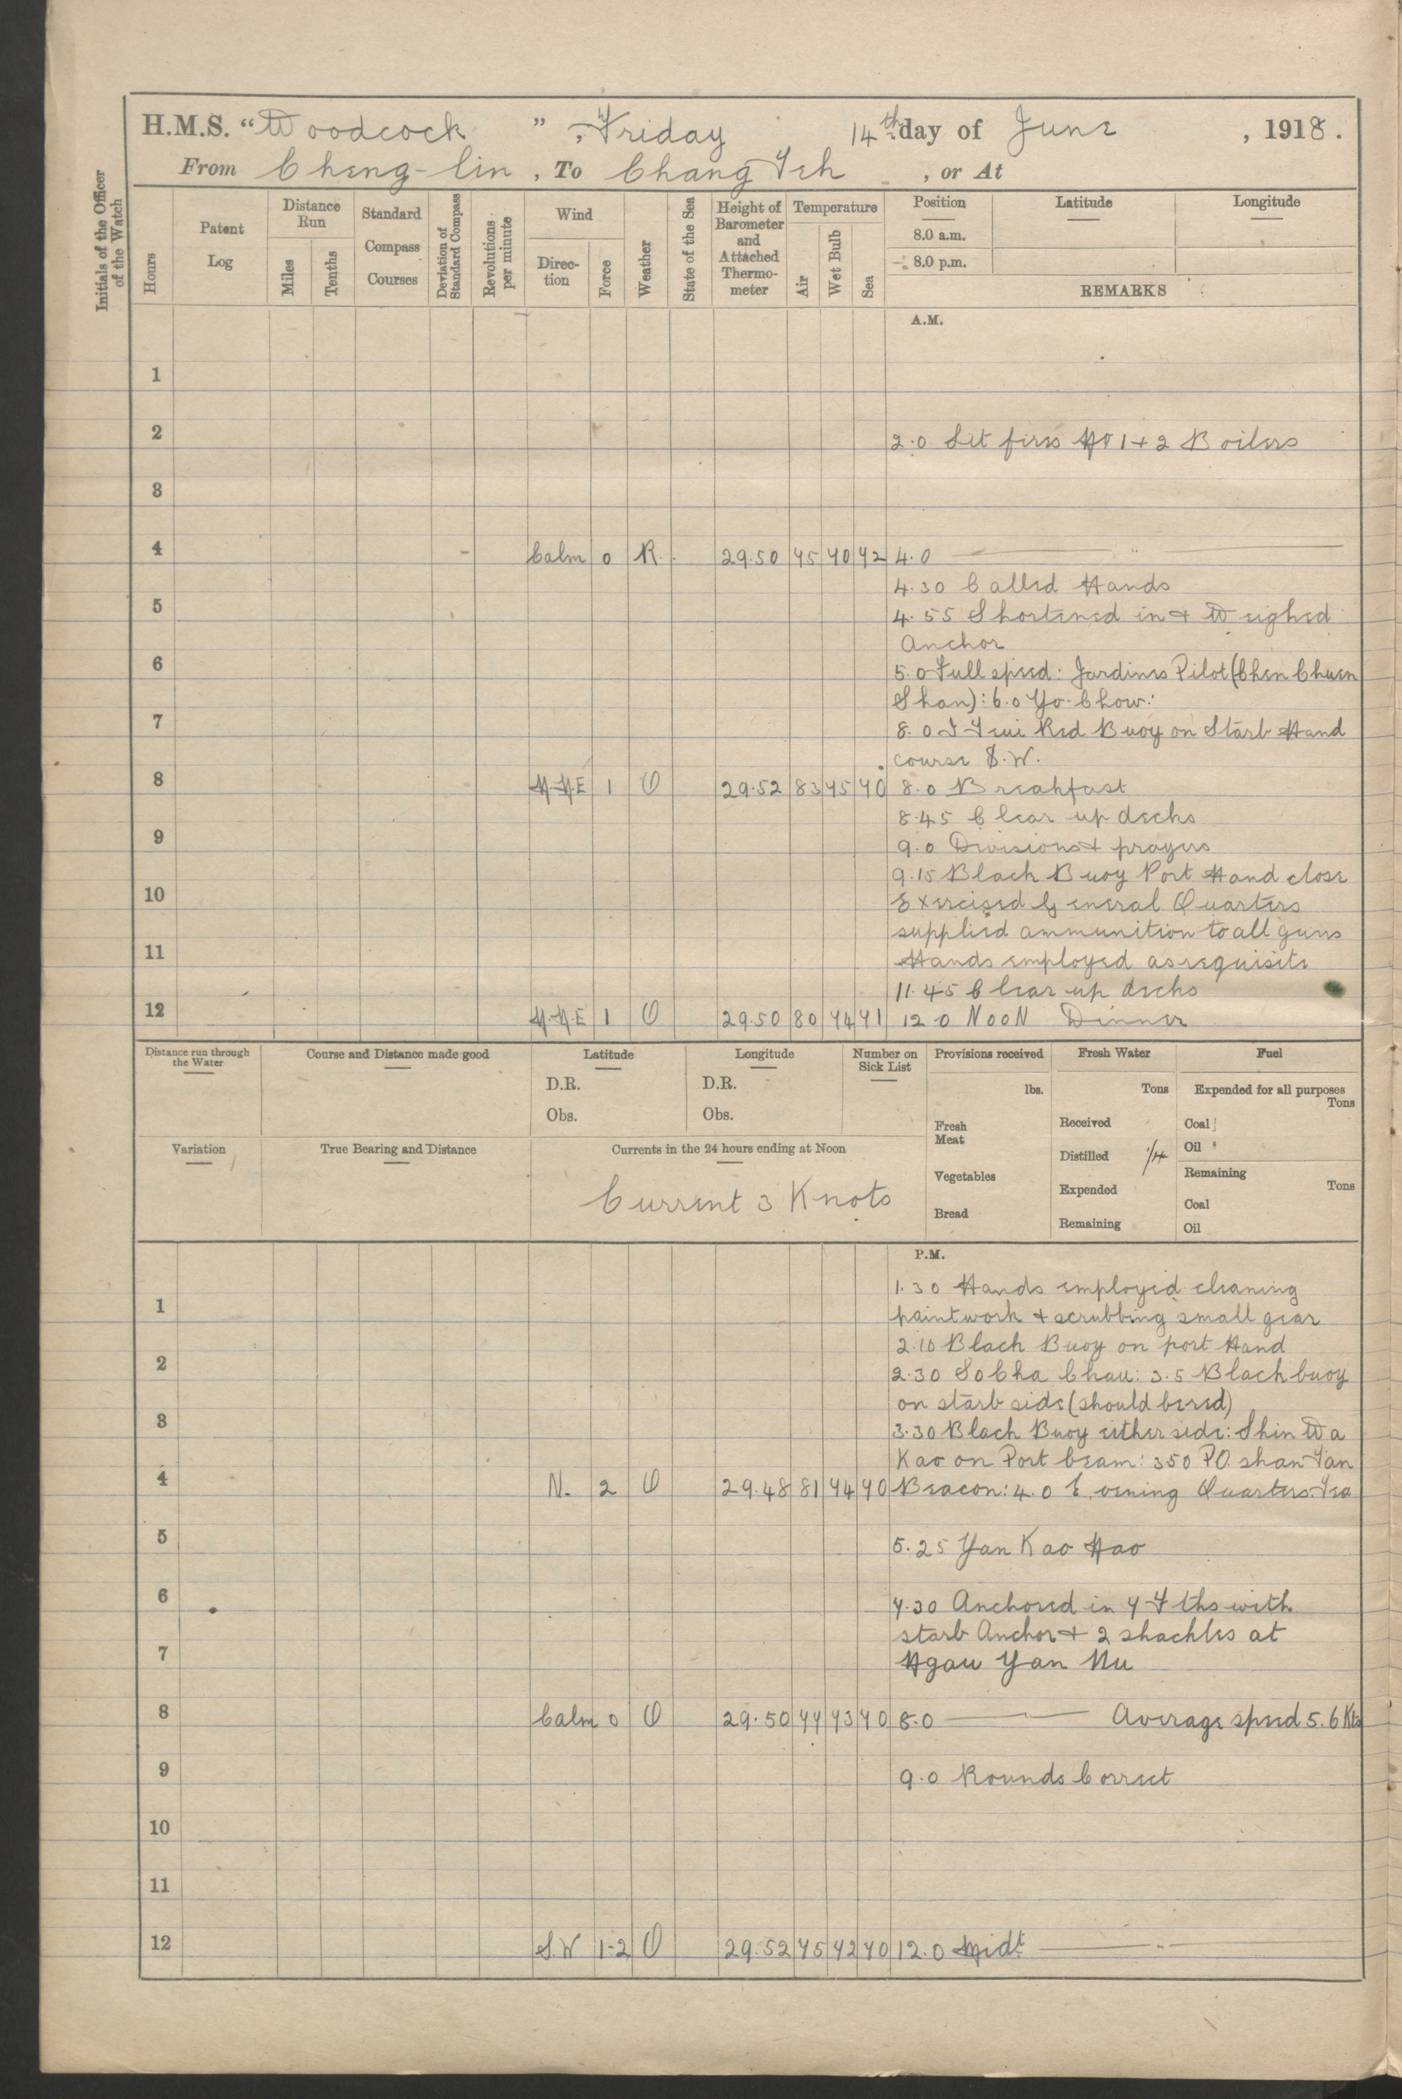 H.M.S. "Woodcock", Friday 14th day of June, 1918.
From Cheng-lin, To Chang Teh, or At
Initials of the Officer of the Watch
Hours
Patent Log
Distance Run
Miles
Tenths
Standard Compass Courses
Deviation of Standard Compass
Revolutions per minute
Wind
Direc-tion
Force
Weather
State of the Sea
Height of Barometer and Attached Thermo-meter
Temperature
Air
Wet Bulb
Sea
Position Latitude Longitude
8.0 a.m.
8.0 p.m.
REMARKS
A.M.
1
2 2.0 Lit fires No 1 + 2 Boilers
3
4 Calm 0 R. 29.50 75 70 72 4.0
4.30 Called Hands
5 4.55 Shortened in + Weighed
Anchor
6 5.0 Full speed: Jardines Pilot (Chen Chuen
Shan): 6.0 Yo-Chow:
7 8.0 Red Buoy on Starb Hand
course S.W.
8 N.N.E 1 O 29.52 83 75 70 8.0 Breakfast
8.45 Clear up decks
9 9.0 Divisions + prayers
9.15 Black Buoy Port Hand close
10 Exercised General Quarters
supplied ammunition to all guns
11 Hands employed as requisite
11.45 Clear up decks
12 N.N.E 1 O 29.50 80 74 71 12.0 NOON Dinner
Distance run through the Water
Course and Distance made good
Latitude
D.R.
Obs.
Longitude
D.R.
Obs.
Number on Sick List
Provisions received
lbs.
Fresh Meat
Vegetables
Bread
Fresh Water
Tons
Received
Distilled 1/4
Expended
Remaining
Fuel
Expended for all purposes
Tons
Coal
Oil
Remaining
Tons
Coal
Oil
Variation
True Bearing and Distance
Currents in the 24 hours ending at Noon
Current 3 Knots
P.M.
1.30 Hands employed cleaning
1 paintwork + scrubbing small gear
2.10 Black Buoy on port Hand
2 2.30 So Cha Chau: 3.5 Black buoy
on starb side (should be red)
3 3.30 Black Buoy either side: Shin Wa
Kao on Port beam: 350 PO shan Tan
4 N. 2 O 29.48 81 74 70 Beacon: 4.0 Evening Quarters. Tea
5 5.25 Yan Kao Hao
6 7.30 Anchored in 7 Fths with
starb Anchor + 2 shackles at
7 Ngau Yan Mu
8 Calm 0 O 29.50 77 73 70 8.0 Average speed 5.6 Kts
9 9.0 Rounds Correct
10
11
12 S.W 1-2 O 29.52 75 72 70 12.0 Midt